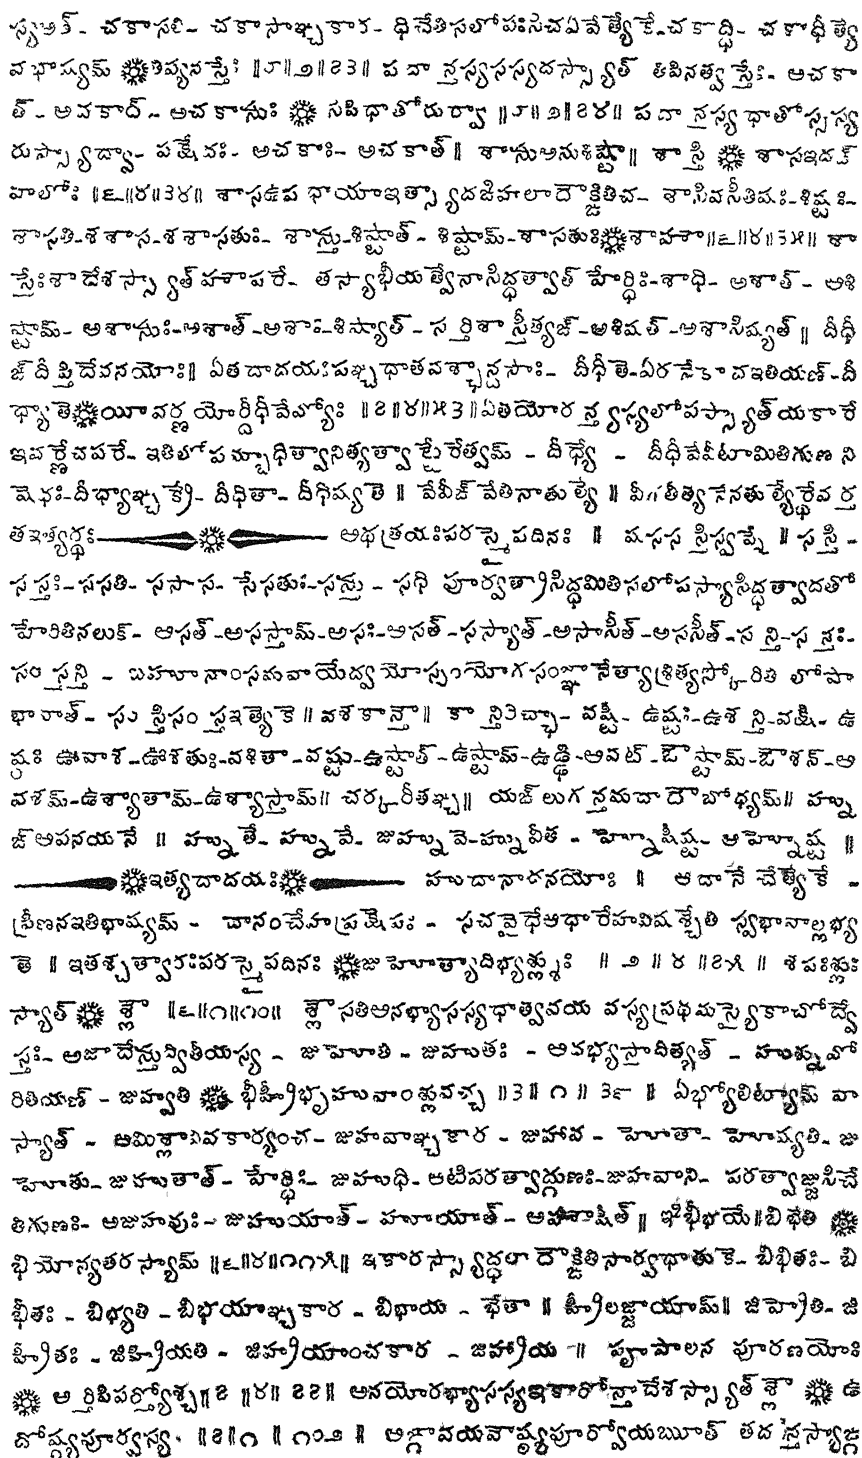 స్యఅత్ - చకాసతి - చకాసాఞ్చకార - ధిచేతిసలోపఃసిచఏవేత్యేకే-చకాద్ధి - చకాధీత్యే
వభాష్యమ్ ❋తిప్యనస్తేః ॥౮॥౨॥౭౩॥ పదా న్తస్యసస్యదస్స్యాత్ తిపినత్వ స్తేః- అచకా
త్ - అచకాద్ - అచకాసుః ❋ సిపిధాతోరుర్వా ॥౮॥౨॥౭౪॥ పదా న్తస్య ధాతోస్సస్య
రుస్స్యాద్వా- పక్షేదః- అచకాః- అచకాత్॥ శాసుఅనుశిష్టౌ॥ శా స్తి ❋ శాసఇదఙ్
హలోః ॥౬॥౪॥౩౪॥ శాసఉప ధాయాఇత్స్యాదఙిహలాదౌక్ఙితిచ- శాసివసీతిషః-శిష్టః-
శాసతి-శశాస-శశాసతుః- శాస్తు-శిష్టాత్ - శిష్టామ్-శాసతుః❋శాహౌ॥౬॥౪॥౩౫॥ శా
స్తేఃశాదేశస్స్యాత్‌హౌపరే- తస్యాభీయత్వేనాసిద్ధత్వాత్ హేర్ధిః-శాధి- అశాత్ - అశి
ష్టామ్- అశాసుః-అశాత్ -అశాః-శిష్యాత్ - స ర్తిశా స్తీత్యఙ్-అశిషత్ -అశాసిష్యత్॥ దీధీ
ఙ్ దీప్తిదేవనయోః॥ ఏతదాదయఃపఞ్చధాతవశ్ఛాన్దసాః- దీధీతే-ఏరనేకాచఇతియణ్-దీ
ధ్యాతే❋యీవర్ణ యోర్దీధీవేవ్యోః ॥౭॥౪॥౫౩॥ఏతయోర న్త్యస్యలోపస్స్యాత్‌యకారే
ఇవర్ణేచపరే- ఇతిలోపమ్బాధిత్వానిత్యత్వా ట్టేరేత్వమ్ - దీధ్యే - దీధీవేవీటామితిగుణ ని
షేధః-దీధ్యాఞ్చక్రే- దీధితా- దీధిష్యతే ॥ వేవీఙ్ వేతినాతుల్యే ॥ వీగతీత్య నేనతుల్యేర్థేవ ర్త
తఇత్యర్థః ❋ అథత్రయఃపరస్మైపదినః ॥ షసస స్తిస్వప్నే ॥ స స్తి -
స స్తః- ససతి- ససాస- సేసతుః-సస్తు - సధి పూర్వత్రాసిద్ధమితిసలోపస్యాసిద్ధత్వాదతో
హేరితినలుక్- ఆసత్ -అసస్తామ్-అసః-అసత్ -సస్యాత్ -అసాసీత్ -అససీత్ -స న్తి-స న్తః-
సం స్తన్తి - బహూనాంసమవాయేద్వయోస్సంయోగసంజ్ఞానేత్యాశ్రిత్యస్కోరితి లోపా
భావాత్ - సం స్తిసం స్తఇత్యేకే॥వశకాన్తౌ॥ కా న్తిరిచ్ఛా- వష్టి- ఉష్టః-ఉశన్తి-వక్షి- ఉ
ష్ఠః ఉవాశ-ఊశతుః-వశితా- వష్టు-ఉష్టాత్ -ఉష్టామ్-ఉడ్ఢి-అవట్ -ఔష్టామ్-ఔశన్-అ
వశమ్-ఉశ్యాతామ్-ఉశ్యాస్తామ్॥ చర్క రీతఞ్చ॥ యఙ్ లుగ న్తమదాదౌబోధ్యమ్॥ హ్ను
ఙ్ అపనయనే ॥ హ్నుతే- హ్నువే- జుహ్నువే-హ్నువీత - హ్నోషీష్ట- అహ్నోష్ట ॥
❋ఇత్యదాదయః❋ హుదానాదనయోః ॥ ఆదానే చేత్యేకే -
ప్రీణనఇతిభాష్యమ్ - దానంచేహప్రక్షేపః - సచవైధేఆధారేహవిషశ్చేతి స్వభావాల్లభ్య
తే ॥ ఇతశ్చత్వారఃపరస్మైపదినః ❋జుహోత్యాదిభ్యశ్శ్లుః ॥ ౨ ॥ ౪ ॥౭౫ ॥ శపఃశ్లుః
స్యాత్ ❋ శ్లౌ ॥౬॥౧॥౧౦॥ శ్లౌసతిఅనభ్యాసస్యధాత్వవయ వస్యప్రథమస్యైకాచోద్వే
స్తః- అజాదేస్తుద్వితీయస్య - జుహోతి - జుహుతః - అదభ్యస్తాదిత్యత్ - హుశ్నువో
రితియణ్ - జుహ్వతి ❋ భీహ్రీభృహువాంశ్లువచ్చ ॥౩॥ ౧ ॥ ౩౯ ॥ ఏభ్యోలిట్యామ్ వా
స్యాత్ - ఆమిశ్లావివకార్యంచ- జుహవాఞ్చకార - జుహావ - హోతా- హోష్యతి- జు
హోతు- జుహుతాత్ - హేర్ధిః- జుహుధి- ఆటిపరత్వాద్గుణః-జుహవాని- పరత్వాజ్జుసిచే
తిగుణః- అజుహవుః- జుహుయాత్ - హూయాత్ - అహౌషీత్॥ ఞిభీభయే॥బిభేతి ❋
భియోన్యతరస్యామ్ ॥౬॥౪॥౧౧౫॥ ఇకారస్స్యాద్ధలా దౌక్ఙితిసార్వధాతుకే- బిభితః- బి
భీతః - బిభ్యతి -బిభయాఞ్చకార - బిభాయ - భేతా ॥ హ్రీలజ్జాయామ్॥ జిహ్రేతి- జి
హ్రీతః - జిహ్రియతి - జిహ్రియాంచకార - జిహ్రాయ ॥ పౄపాలన పూరణయోః
❋ అ ర్తిపిపర్త్యోశ్చ॥౭ ॥౪॥ ౭౭॥ అనయోరభ్యాసస్యఇకారోన్తాదేశస్స్యాత్ శ్లౌ ❋ ఉ
దోష్ఠ్యపూర్వస్య. ॥౭॥౧ ॥ ౧౦౨ ॥ అఙ్గావయవౌష్ఠ్యపూర్వోయౠత్ తద న్తస్యాఙ్గ